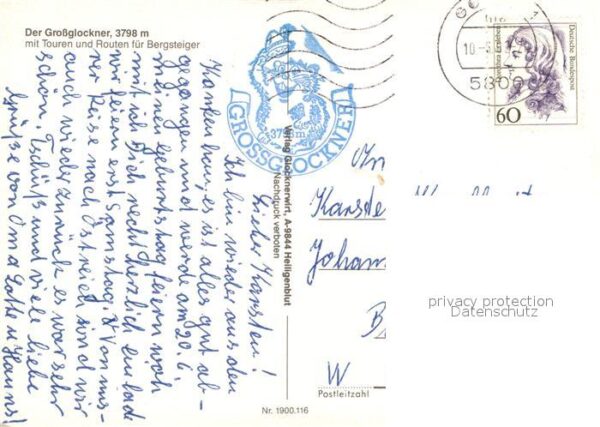 Der Großglockner, 3798 m
mit Touren und Routen für Bergsteiger
Lieber Karsten!
Ich bin wieder aus dem
Krankenhaus, es ist alles gut ab-
gegangen und werde am 20.6.
meinen Geburtstag feiern, wozu
ich dich recht herzlich einlade
wir feiern erst Samstag. Von uns-
rer Reise nach Östreich sind wir
auch wieder zurück es war sehr
schön. Tschüß und viele liebe
Grüße von Oma
3798 m
GROSSGLOCKNER
Verlag Glocknerwirt, A-9844 Heiligenblut
Nachdruck verboten
Nr. 1900.116
An
Karste
Johann
B
W
Postleitzahl
580
Deutsche Bundespost
60
privacy protection
Datenschutz